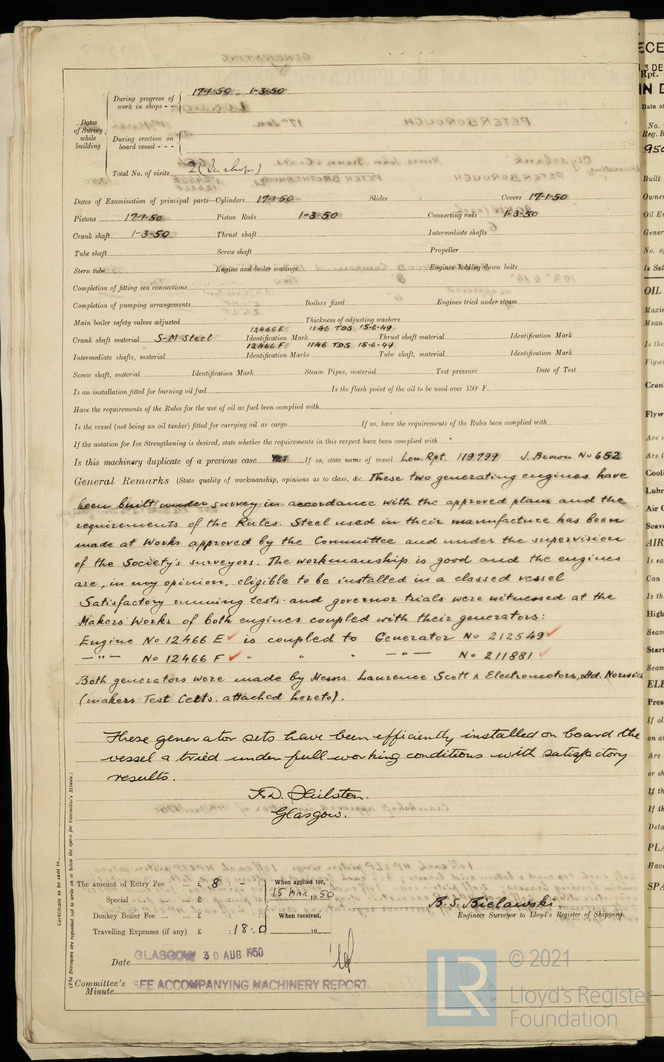 During progress of work in shops - - 17-1-50 - 1-3-50
Dates of Survey while building
During erection on board vessel - - -
Total No. of visits 2 (in shop)
Dates of Examination of principal parts—Cylinders 17-1-50 Slides Covers 17-1-50
Pistons 17-1-50 Piston Rods 1-3-50 Connecting rods 1-3-50
Crank shaft 1-3-50 Thrust shaft Intermediate shafts
Tube shaft Screw shaft Propeller
Stern tube Engine and boiler seatings Engines holding down bolts
Completion of fitting sea connections
Completion of pumping arrangements Boilers fixed Engines tried under steam
Main boiler safety valves adjusted Thickness of adjusting washers
12466 E 1146 TDS 15-6-49
Crank shaft material S-M Steel Identification Mark Thrust shaft material Identification Mark
12466 F 1146 TDS 15-6-49
Intermediate shafts, material Identification Marks Tube shaft, material Identification Mark
Screw shaft, material Identification Mark Steam Pipes, material Test pressure Date of Test
Is an installation fitted for burning oil fuel Is the flash point of the oil to be used over 150° F.
Have the requirements of the Rules for the use of oil as fuel been complied with
Is the vessel (not being an oil tanker) fitted for carrying oil as cargo If so, have the requirements of the Rules been complied with
If the notation for Ice Strengthening is desired, state whether the requirements in this respect have been complied with
Is this machinery duplicate of a previous case YES If so, state name of vessel Lon. Rpt. 119799 J. Brown No 652
General Remarks (State quality of workmanship, opinions as to class, &c. These two generating engines have
been built under survey in accordance with the approved plans and the
requirements of the Rules. Steel used in their manufacture has been
made at Works approved by the Committee and under the supervision
of the Society's surveyors. The workmanship is good and the engines
are, in my opinion, eligible to be installed in a classed vessel
Satisfactory running tests and governor trials were witnessed at the
Makers Works of both engines coupled with their generators:
Engine No 12466 E is coupled to Generator No 212549
—"— No 12466 F " " —"— No 211881
Both generators were made by Messrs. Laurence Scott & Electromotors, Ltd. Norwich
(makers Test Certs. attached hereto).
These generator sets have been efficiently installed on board the
vessel & tried under full working conditions with satisfactory
results.
Glasgow.
Certificate to be sent to
(The Surveyors are requested not to write on or below the space for Committee's Minute.)
The amount of Entry Fee ... £ 8 : - When applied for,
Special ... ... £ : : 15 MAR 1950
B.S. Bielawski.
Donkey Boiler Fee ... £ : : When received, Engineer Surveyor to Lloyd's Register of Shipping.
Travelling Expenses (if any) £ : 18 : 0 19
Date GLASGOW 30 AUG 1950
Committee's Minute SEE ACCOMPANYING MACHINERY REPORT
LR © 2021
Lloyd's Register
Foundation